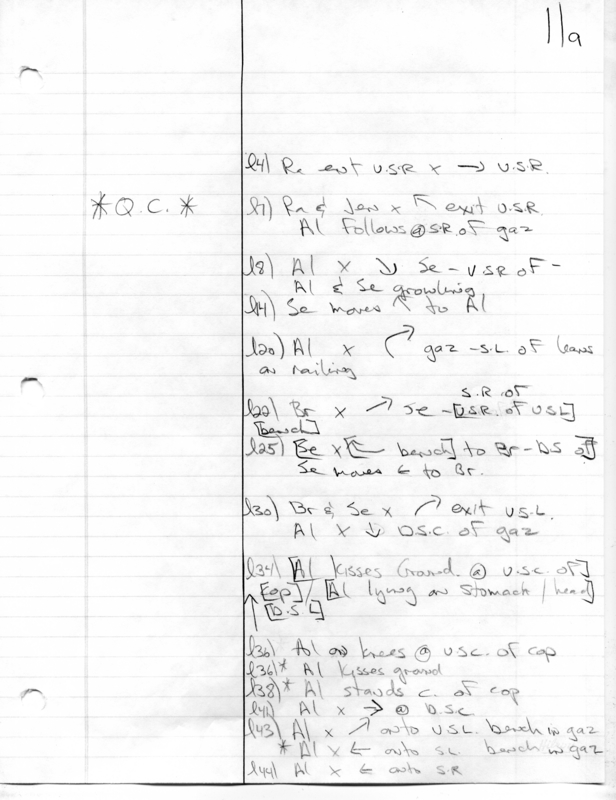 11a
l4) Ra ent U.S.R x → U.S.R.
*Q.C.* l7) Ra & Jen x ↖ exit U.S.R.
Al follows @ S.R. of gaz
l8) Al x ↘ Se - U.S.R of -
Al & Se growling
l14) Se moves ↖ to Al
l20) Al x ↗ gaz - S.L. of leans
on railing
S.R. of
l22) Br x ↗ Se - [U.S.R. of USL]
[bench]
l25) [Se x [↖ bench] to Br - DS of]
Se moves ← to Br.
l30) Br & Se x ↗ exit U.S.L.
Al x ↓ D.S.C. of gaz
l34) [Al kisses Ground @ U.S.C. of]
[cop] / [Al lying on stomach / head]
[D.S.L]
l36) Al on knees @ U.S.C. of cop
l36)* Al kisses ground
l38)* Al stands c. of cop
l41) Al x → @ D.S.C
l43) Al x ↗ onto U.S.L. bench in gaz
* Al x ← onto S.L. bench in gaz
l44) Al x ← onto S.R